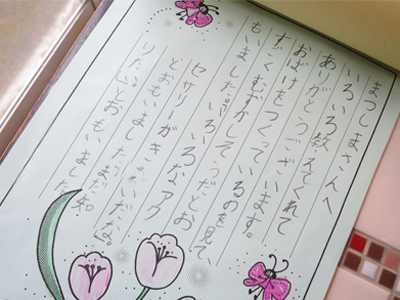 まつしまさんへ
いろいろ教えてくれて
ありがとうございます。
おばけをつくっているのを見て、
すごくむずかしそうだとお
もいました。いろいろなアク
セサリーがき
とおもいました。まだ知
りた　　とおもいました